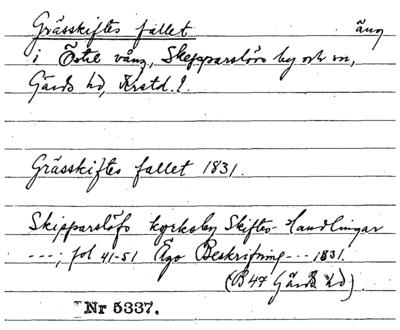 Grässkiftes fallet äng
i Östre vång, Skepparslövs by och sn,
Gärds hd, Krstd. l.
Grässkiftes fallet 1831.
Skipparslöfs kyrkoby Skiftes-Handlingar
---; fol 41-51 Ego Beskrifning --- 1831.
(B47 Gärds hd).
Nr 5337.